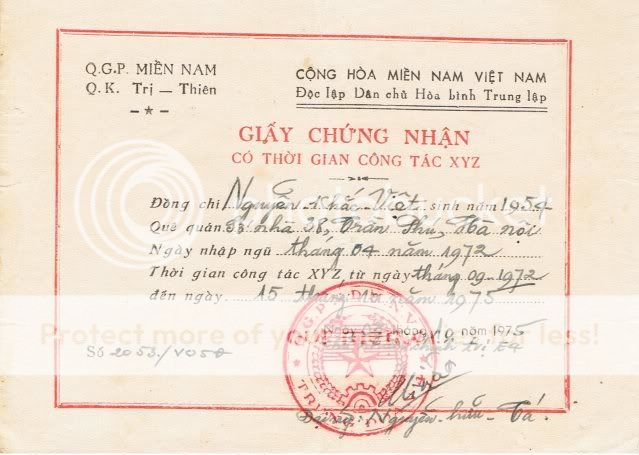 Q.G.P. MIỀN NAM
Q.K. Trị — Thiên
CỘNG HÒA MIỀN NAM VIỆT NAM
Độc lập Dân chủ Hòa bình Trung lập
GIẤY CHỨNG NHẬN
CÓ THỜI GIAN CÔNG TÁC XYZ
Đồng chí Nguyễn Khắc Việt sinh năm 1954
Quê quán Số nhà 38, Trần Phú, Hà nội
Ngày nhập ngũ tháng 04 năm 1972
Thời gian công tác XYZ từ ngày tháng 09-1972
đến ngày 15 tháng năm 1975
Protect more of your memories for less!
Ngày tháng 10 năm 1975
Số 2053/VO50
Q.G.P
Nguyễn-hữu-Tá